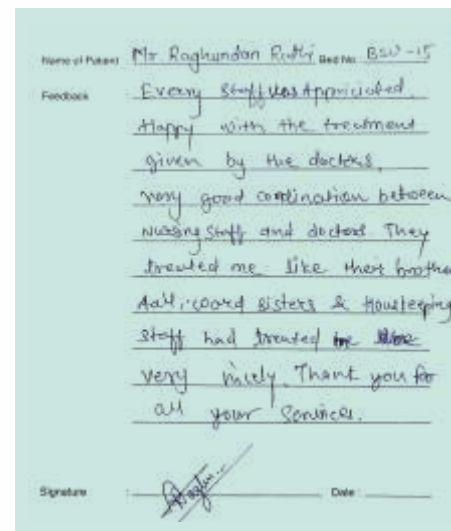 Name of Patient Mr. Raghundan Rathi Bed No. BSW-15
Feedback Every Staff was Appriciated.
Happy with the treatment
given by the doctors.
very good cordination between
Nursing Staff and doctors They
treated me like their brother
Aall, ward sisters & Housleeping
staff had treated me
very nicely. Thank you for
all your Services.
Signature : Date :